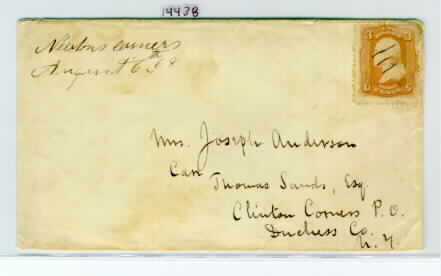 14438
Newtons corners
August 6th
Mrs. Joseph Anderson
Care
Thomas Sands, Esq.
Clinton Corners P. O.
Duchess Co.
N. Y.